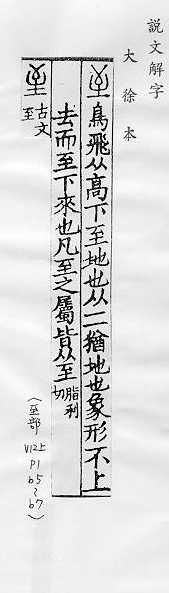 説文解字
大徐本
鳥飛从高下至地也从二猶地也象形不上
去而至下來也凡至之屬皆从至 脂利切
古文至
(至部 V12上 P1 b5~b7)